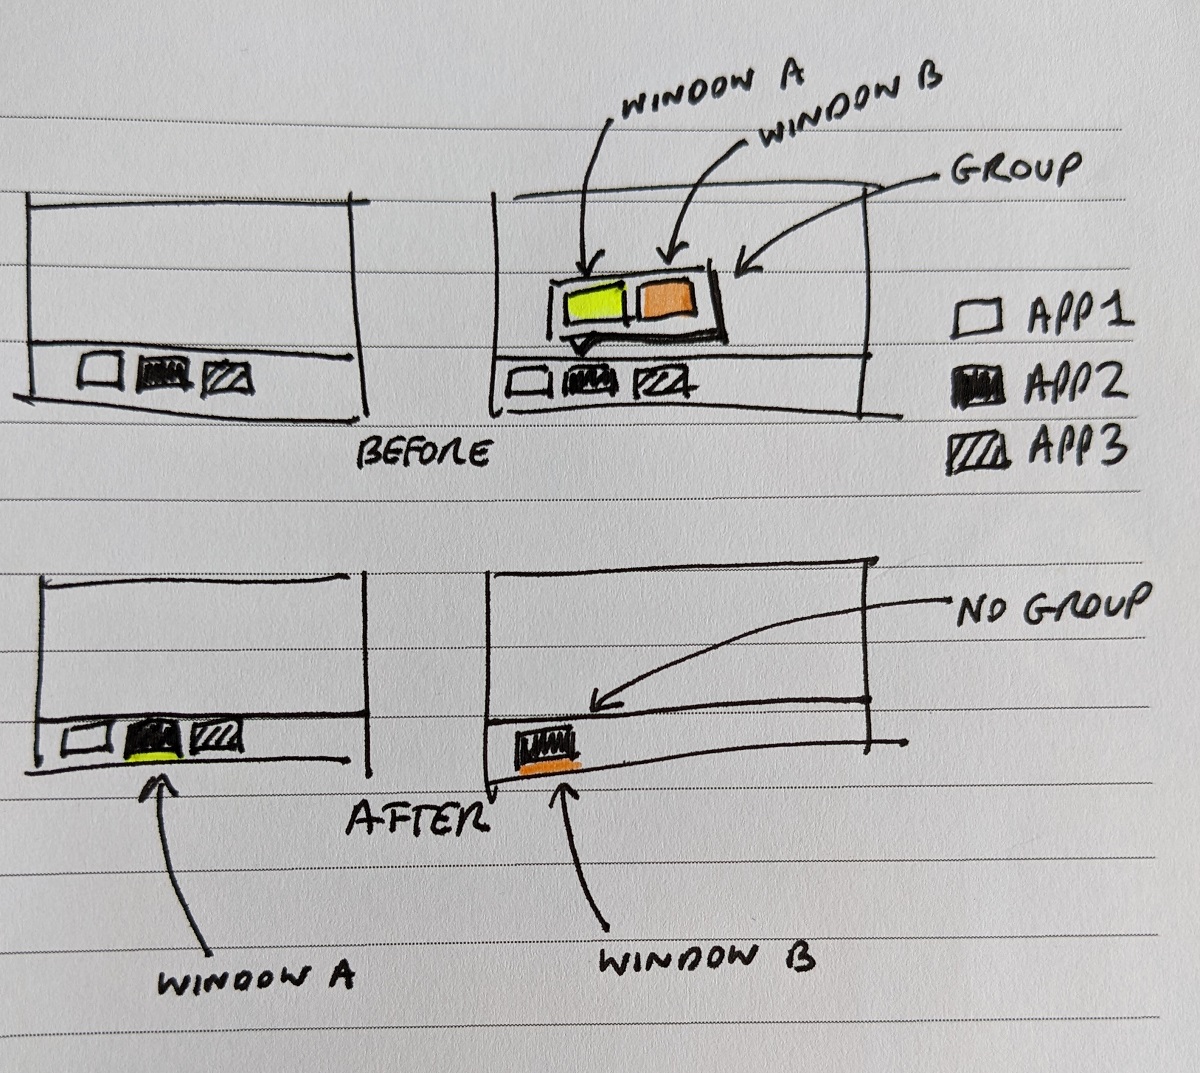 WINDOW A
WINDOW B
GROUP
APP1
APP2
APP3
BEFORE
NO GROUP
AFTER
WINDOW A
WINDOW B